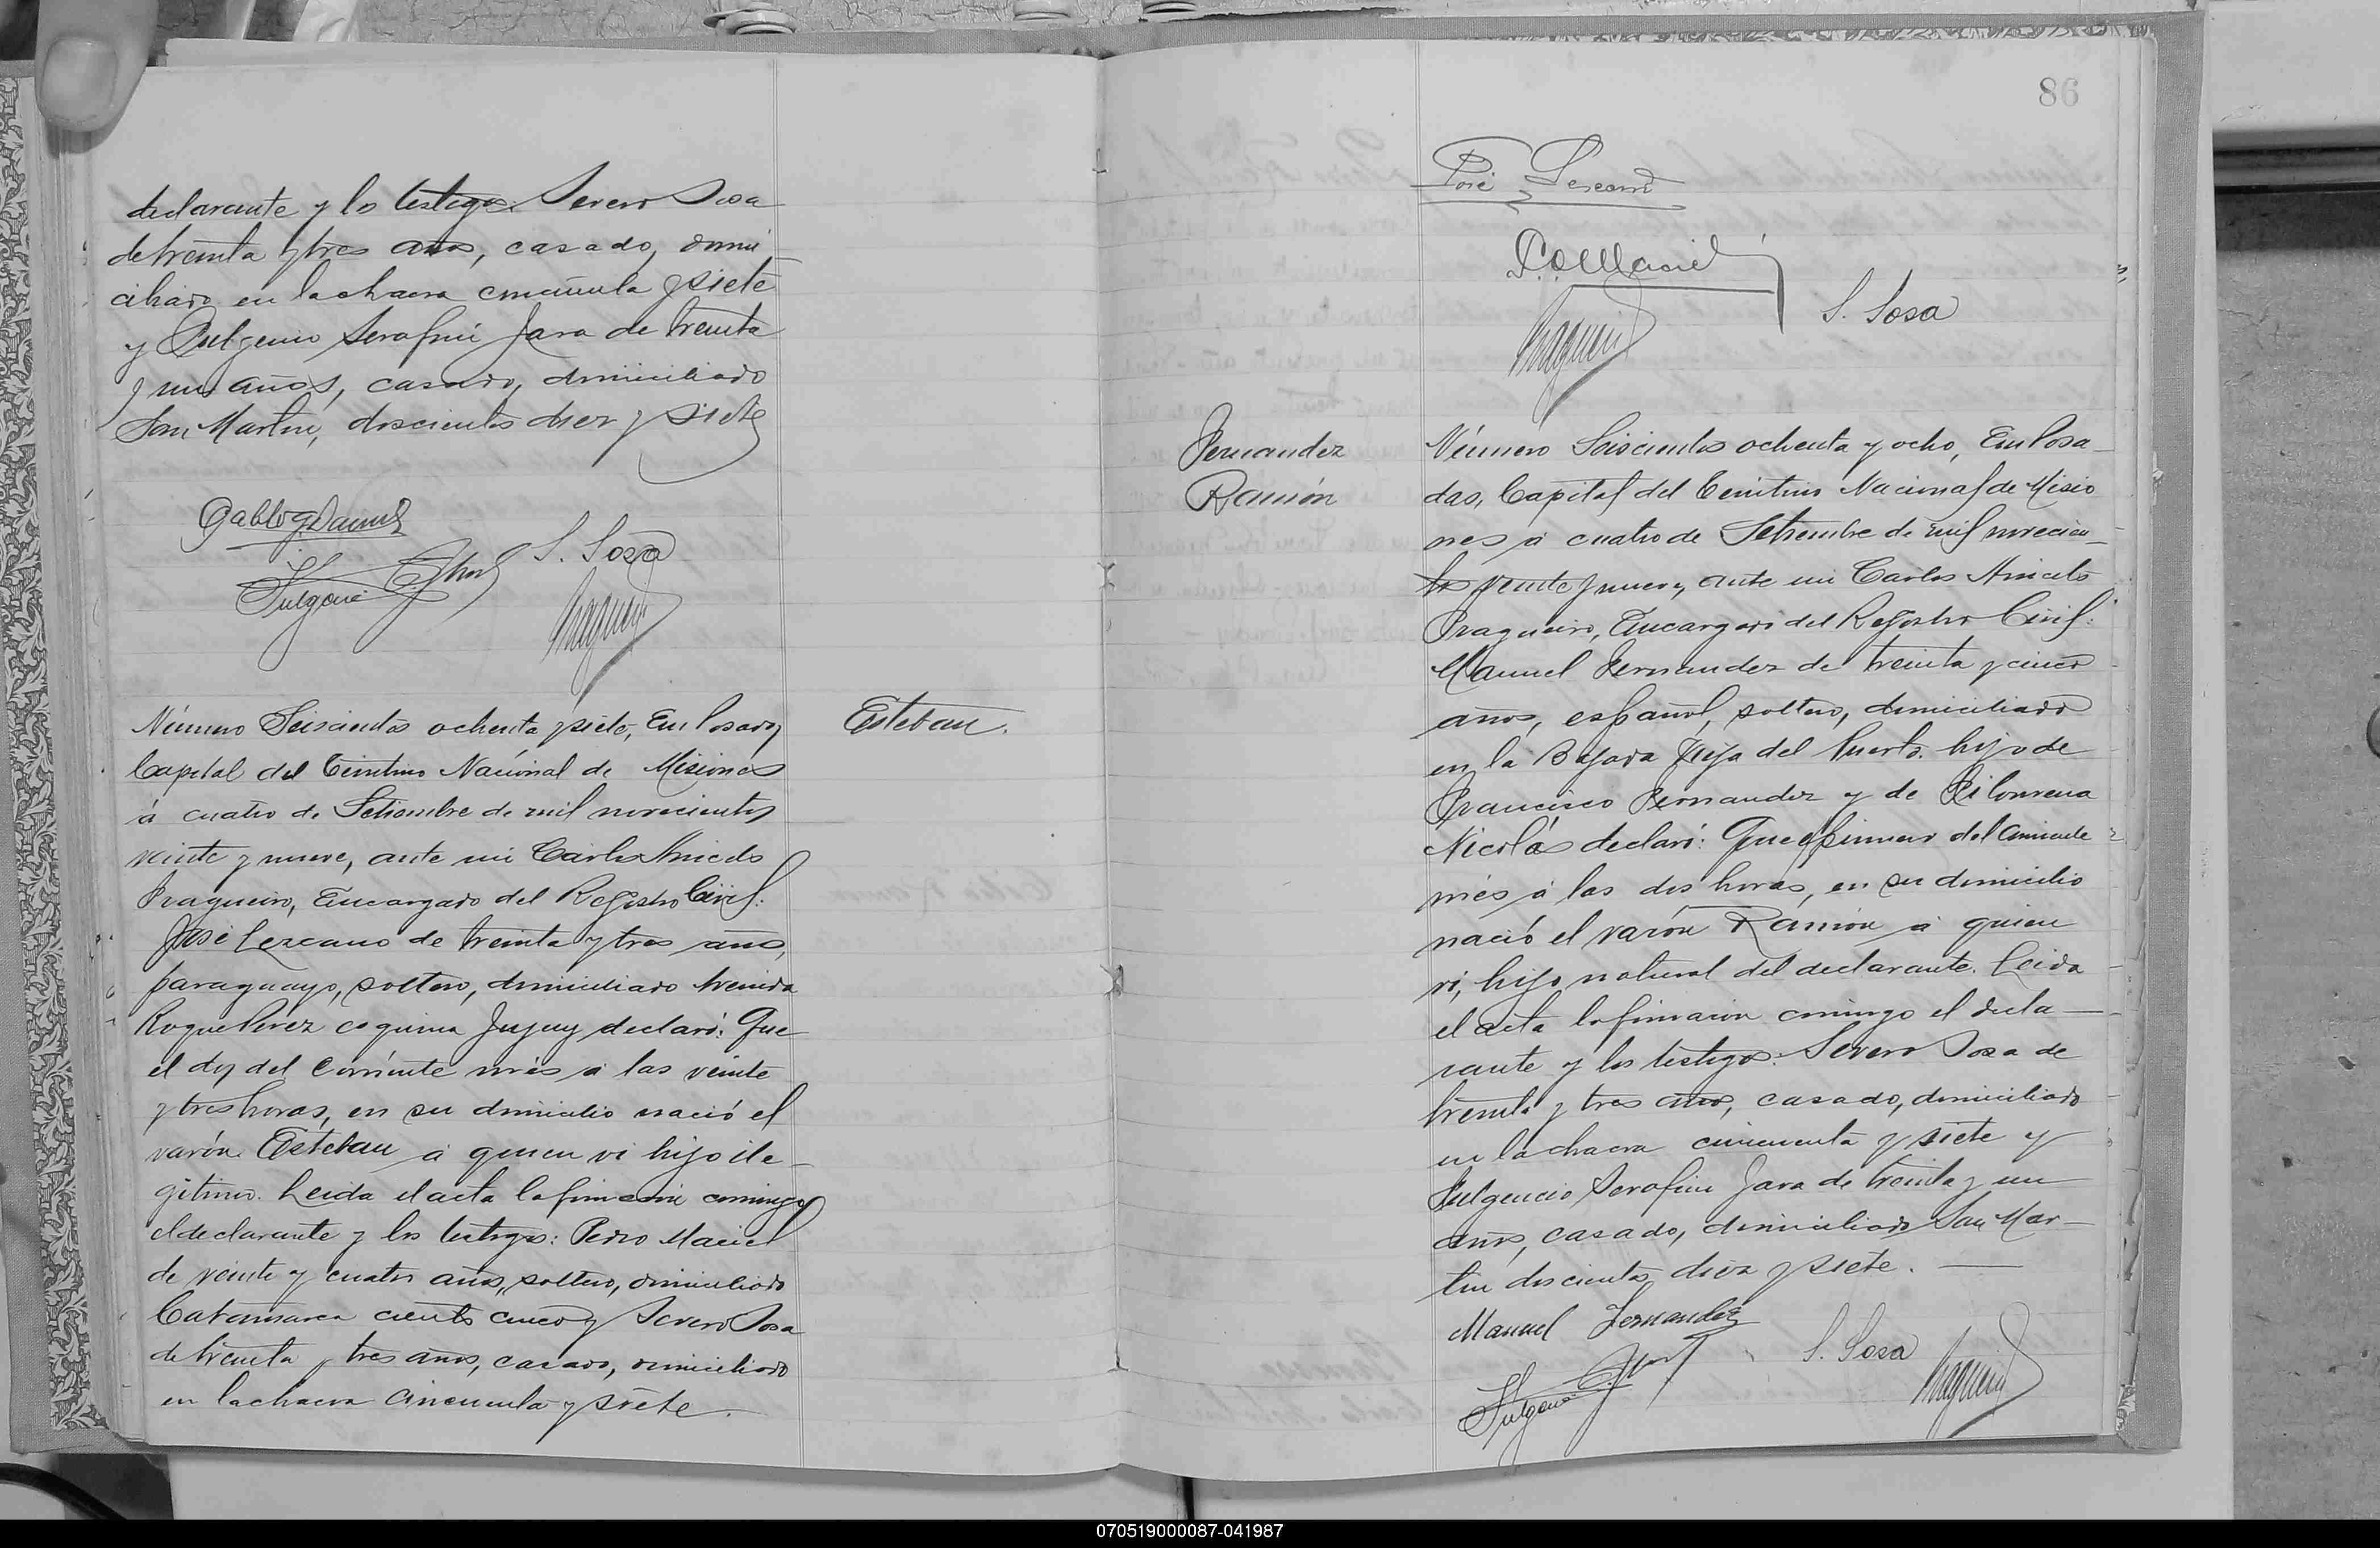 declarante y los testigos: Severo Sosa
de treinta y tres años, casado, domi
ciliado en la chacra cincuenta y siete
y Fulgencio Serafin Jara de treinta
y un años, casado, domiciliado
San Martin, doscientos diez y siete
S. Sosa
Fulgencio
Número Seiscientos ochenta y siete, En Posadas,
Capital del Territorio Nacional de Misiones
á cuatro de Setiembre de mil novecientos
veinte y nueve, ante mi Carlos Aniceto
Fragueiro, Encargado del Registro Civil:
José Lezcano de treinta y tres años,
paraguayo, soltero, domiciliado Avenida
Roque Perez esquina Jujuy declaró: Que
el dos del corriente més a las veinte
y tres horas, en su domicilio nació el
varón Esteban a quien vi hijo ile-
gitimo. Leida el acta la firmaron conmigo
el declarante y los testigos: Pedro Maciel
de veinte y cuatro años, soltero, domiciliado
Catamarca ciento cinco y Severo Sosa
de treinta y tres años, casado, domiciliado
en la chacra cincuenta y siete.
Esteban.
86
José Lezcano
P. Maciel
S. Sosa
Fernandez
Ramón
Número Seiscientos ochenta y ocho, En Posa-
das, Capital del Territorio Nacional de Misio
nes á cuatro de Setiembre de mil novecien-
tos veinte y nueve, ante mi Carlos Aniceto
Fragueiro, Encargado del Registro Civil:
Manuel Fernandez de treinta y cinco
años, español, soltero, domiciliado
en la Bajada Vieja del Puerto, hijo de
Francisco Fernandez y de Filomena
Nicolás declaró: Que el primero del corriente
més á las dos horas, en su domicilio
nació el varón Ramón á quien
vi, hijo natural del declarante. Leida
el acta la firmaron conmigo el decla-
rante y los testigos: Severo Sosa de
treinta y tres años, casado, domiciliado
en la chacra cincuenta y siete y
Fulgencio Serafin Jara de treinta y un
años, casado, domiciliado San Mar-
tin doscientos diez y siete.
Manuel Fernandez
S. Sosa
Fulgencio
070519000087-041987